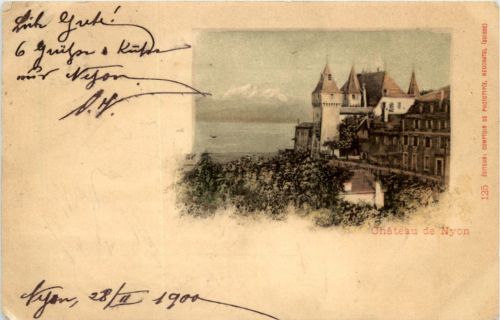 Liebe Grete!
6 Grüße & Küsse
aus Nyon.
Château de Nyon
125 EDITEUR: COMPTOIR DE PHOTOTYPIE, NEUCHATEL (SUISSE)
Nyon, 28/II 1900